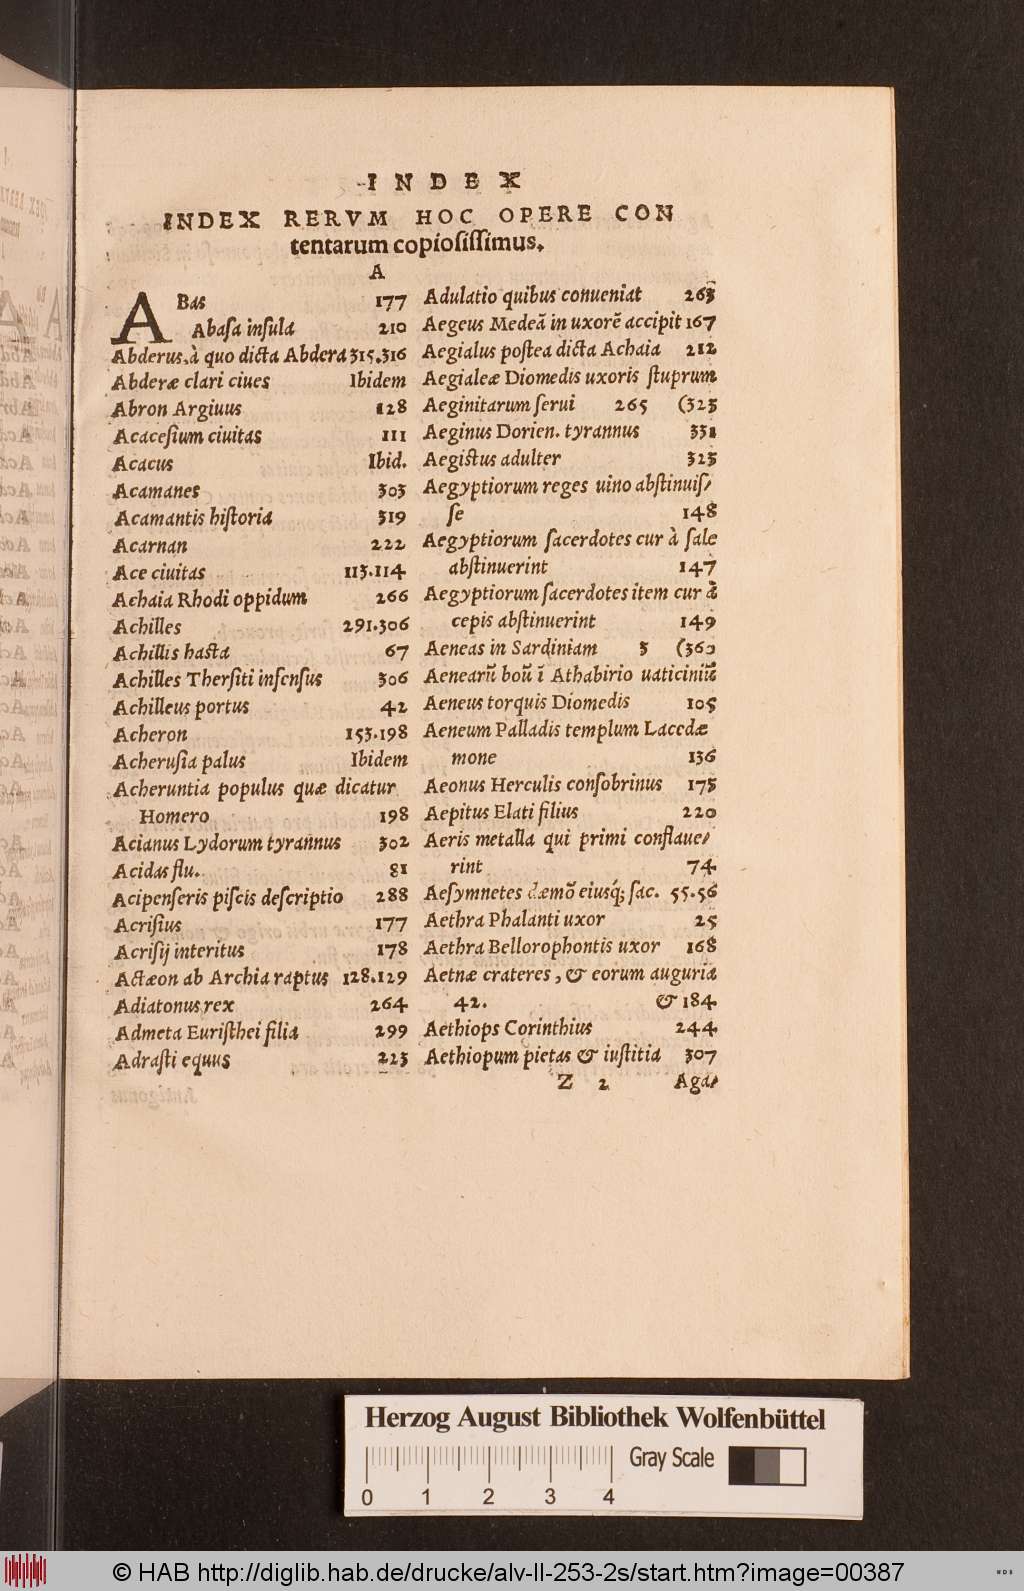 INDEX
INDEX RERVM HOC OPERE CON
tentarum copiosissimus.
A
ABas 177
Abasa insula 210
Abderus, à quo dicta Abdera 315.316
Abderæ clari ciues Ibidem
Abron Argiuus 128
Acacesium ciuitas 111
Acacus Ibid.
Acamanes 303
Acamantis historia 319
Acarnan 222
Ace ciuitas 113.114
Achaia Rhodi oppidum 266
Achilles 291.306
Achillis hasta 67
Achilles Thersiti infensus 306
Achilleus portus 42
Acheron 153.198
Acherusia palus Ibidem
Acheruntia populus quæ dicatur
Homero 198
Acianus Lydorum tyrannus 302
Acidas flu. 81
Acipenseris piscis descriptio 288
Acrisius 177
Acrisij interitus 178
Actæon ab Archia raptus 128.129
Adiatonus rex 264
Admeta Euristhei filia 299
Adrasti equus 223
Adulatio quibus conueniat 263
Aegeus Medeā in uxorē accipit 167
Aegialus postea dicta Achaia 212
Aegialeæ Diomedis uxoris stuprum
Aeginitarum serui 265 (323
Aeginus Dorien. tyrannus 331
Aegistus adulter 323
Aegyptiorum reges uino abstinuis/
se 148
Aegyptiorum sacerdotes cur à sale
abstinuerint 147
Aegyptiorum sacerdotes item cur à
cepis abstinuerint 149
Aeneas in Sardiniam 3 (360
Aenearū boū ī Athabirio uaticiniū
Aeneus torquis Diomedis 105
Aeneum Palladis templum Lacedæ
mone 136
Aeonus Herculis consobrinus 175
Aepitus Elati filius 220
Aeris metalla qui primi conflaue/
rint 74
Aesymnetes dæmō eiusq́; sac. 55.56
Aethra Phalanti uxor 25
Aethra Bellorophontis uxor 168
Aetnæ crateres, & eorum auguria
42. & 184
Aethiops Corinthius 244
Aethiopum pietas & iustitia 307
Z 2 Aga/
Herzog August Bibliothek Wolfenbüttel
Gray Scale
0 1 2 3 4
© HAB http://diglib.hab.de/drucke/alv-ll-253-2s/start.htm?image=00387